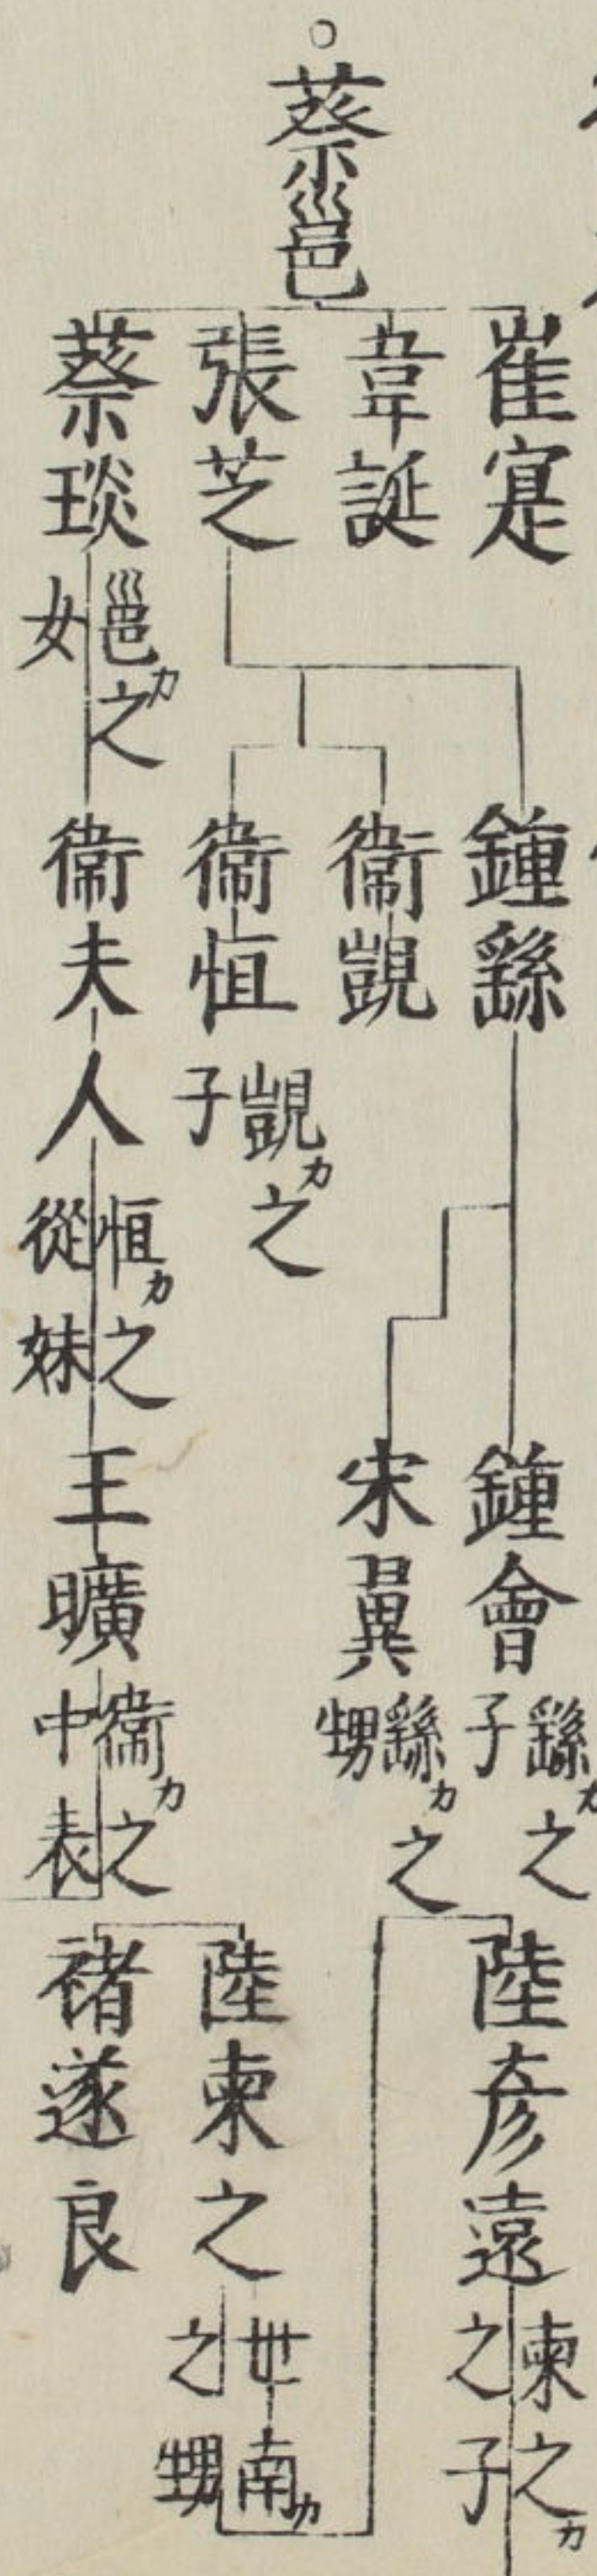 蔡邕
崔寔
韋誕
張芝
蔡琰 邕カ之女
鍾繇
衞覬
衞恒 覬カ之子
衞夫人 恒カ之從妹
鍾會 繇カ之子
宋翼 繇カ之甥
王曠 衞カ之中表
陸彦遠 柬之カ之子
陸柬之 世南カ之甥
褚遂良